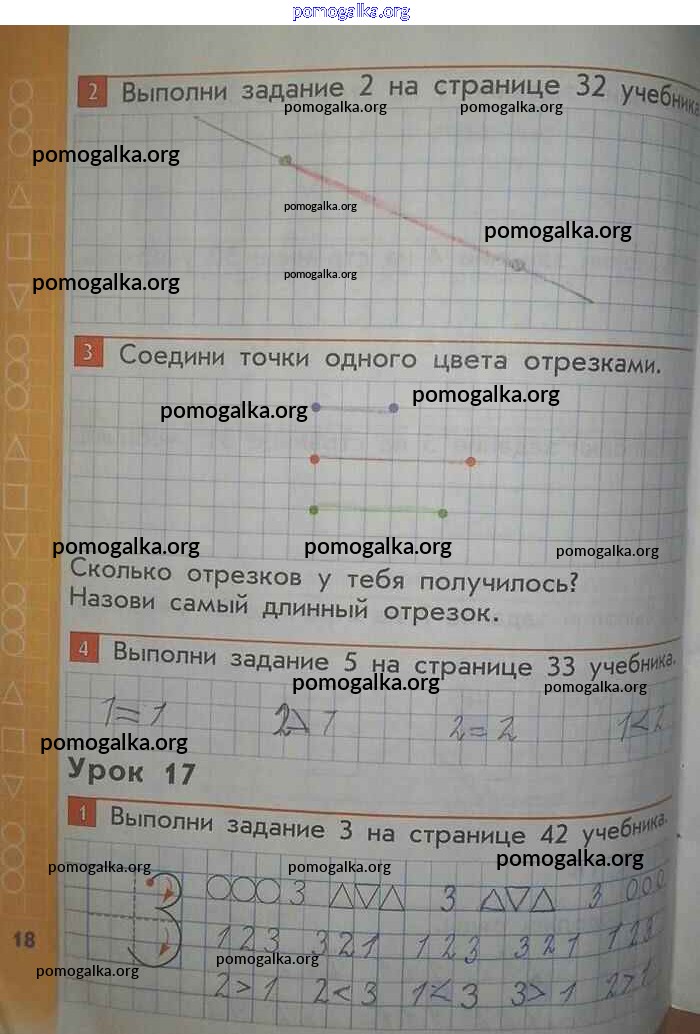 pomogalka.org
2 Выполни задание 2 на странице 32 учебника.
pomogalka.org pomogalka.org
pomogalka.org
pomogalka.org
pomogalka.org
pomogalka.org
pomogalka.org
3 Соедини точки одного цвета отрезками.
pomogalka.org
pomogalka.org
pomogalka.org pomogalka.org pomogalka.org
Сколько отрезков у тебя получилось?
Назови самый длинный отрезок.
4 Выполни задание 5 на странице 33 учебника.
pomogalka.org pomogalka.org
1=1 2>1 2=2 1<2
pomogalka.org
Урок 17
1 Выполни задание 3 на странице 42 учебника.
pomogalka.org pomogalka.org pomogalka.org
3 3 3 3
1 2 3 3 2 1 1 2 3 3 2 1 1 2 3
18
pomogalka.org pomogalka.org
2>1 2<3 1<3 3>1 2>1